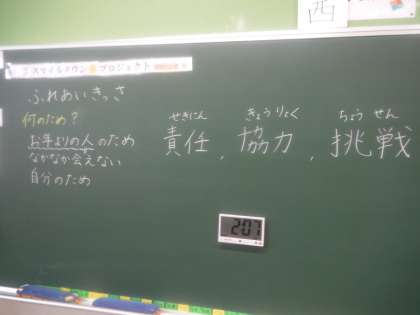 西
スマイルタウン プロジェクト
ふれあいきっさ
何のため？
お年よりの人のため
なかなか会えない
自分のため
せきにん きょうりょく ちょうせん
責任，協力，挑戦
207